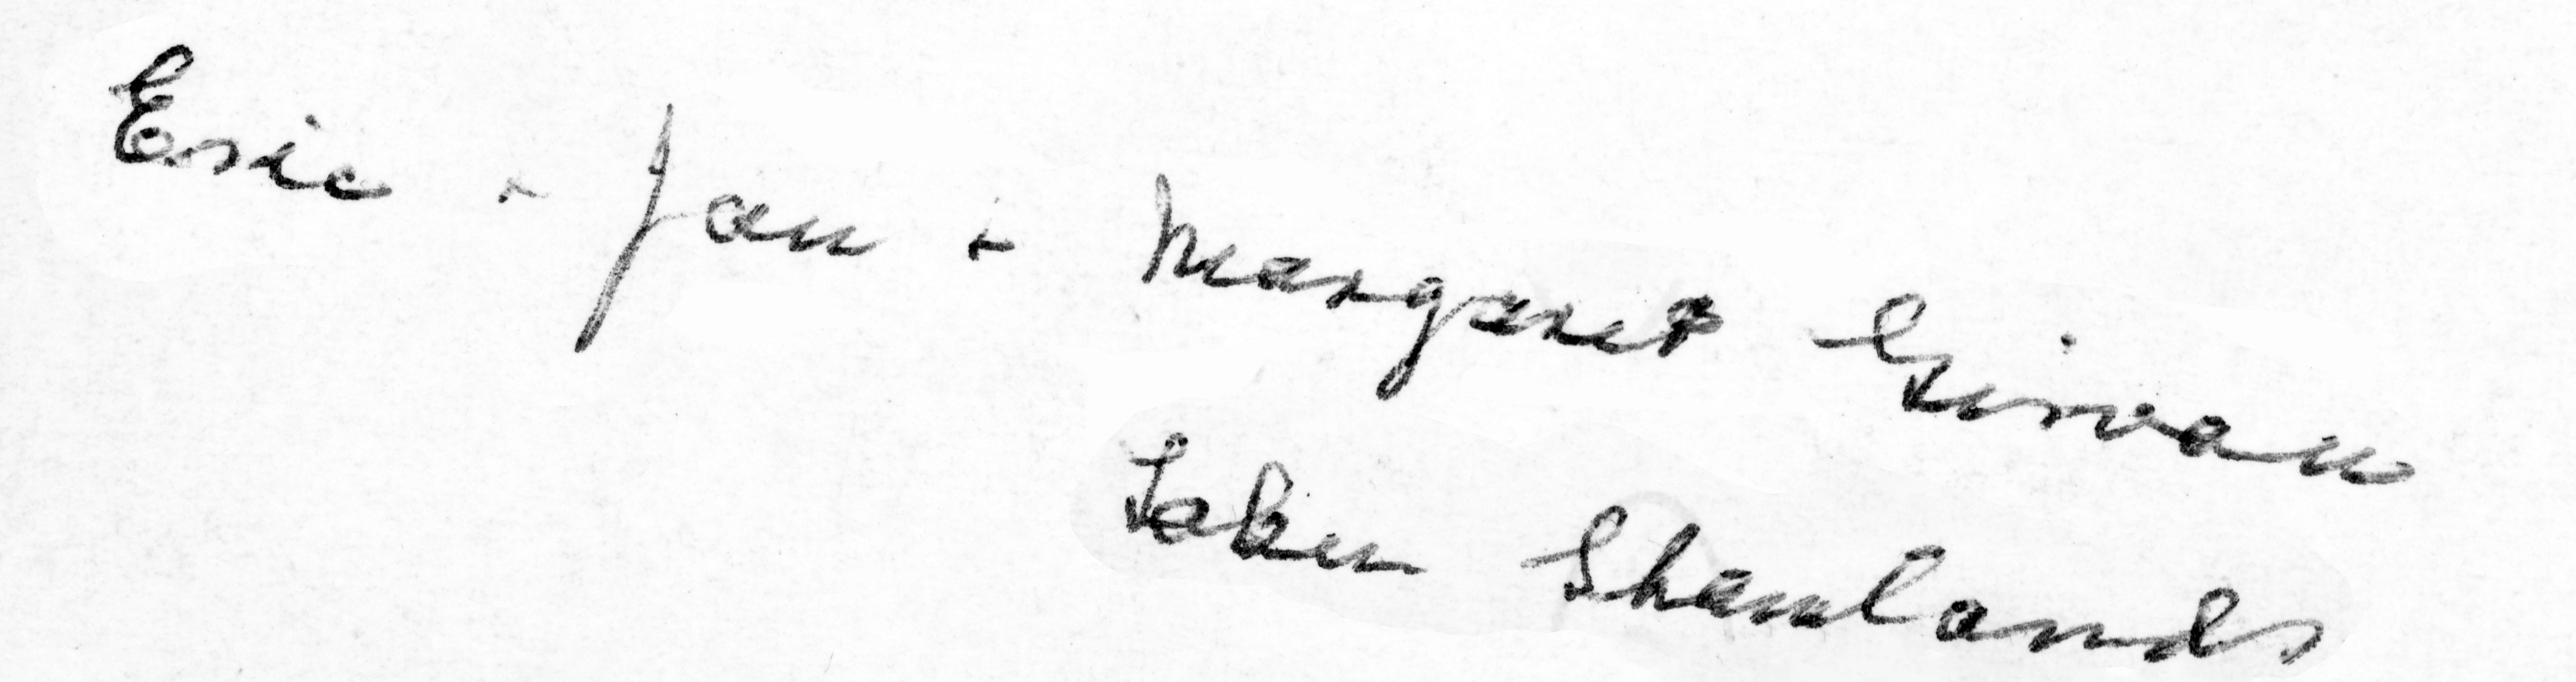 Eric + Jan + Margaret Girvan
Taken Shawlands